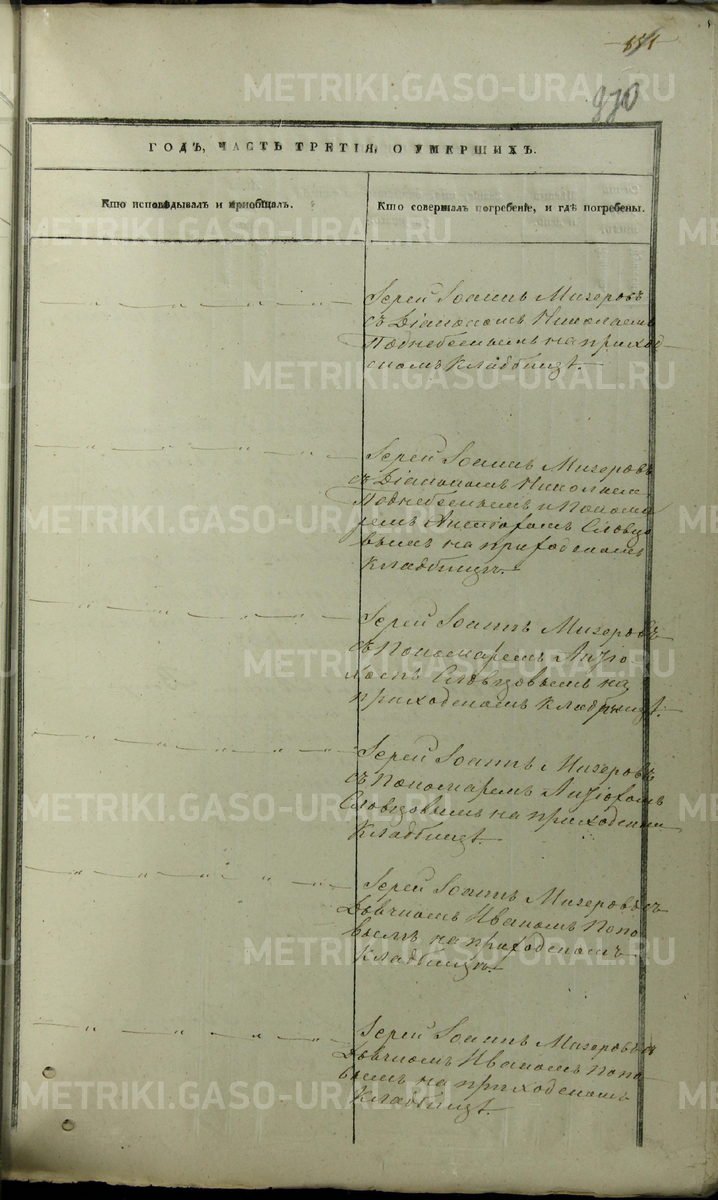 970
ГОДѢ, ЧАСТЬ ТРЕТІЯ, О УМЕРШИХЪ.
Кто исповѣдывалъ и пріобщалъ.
Кто совершалъ погребеніе, и гдѣ погребены.
Іерей Іоаннъ Мизеровъ
съ Діакономъ Николаемъ
Поднебеснымъ на приход
скомъ кладбищѣ.
Іерей Іоаннъ Мизеровъ
съ Діакономъ Николаем
Поднебеснымъ и Понома
ремъ Словцо
вымъ на приходскомъ
кладбищѣ.
Іерей Іоаннъ Мизеровъ
съ Пономаремъ
Словцовымъ на
приходскомъ кладбищѣ.
Іерей Іоаннъ Мизеровъ
съ Пономаремъ
Словцовымъ на приходском
кладбищѣ.
Іерей Іоаннъ Мизеровъ съ
Дьячкомъ Иваномъ Попо
вымъ на приходскомъ
кладбищѣ.
Іерей Іоаннъ Мизеровъ съ
Дьячкомъ Иваномъ Попо
вымъ на приходскомъ
кладбищѣ.
METRIKI.GASO-URAL.RU